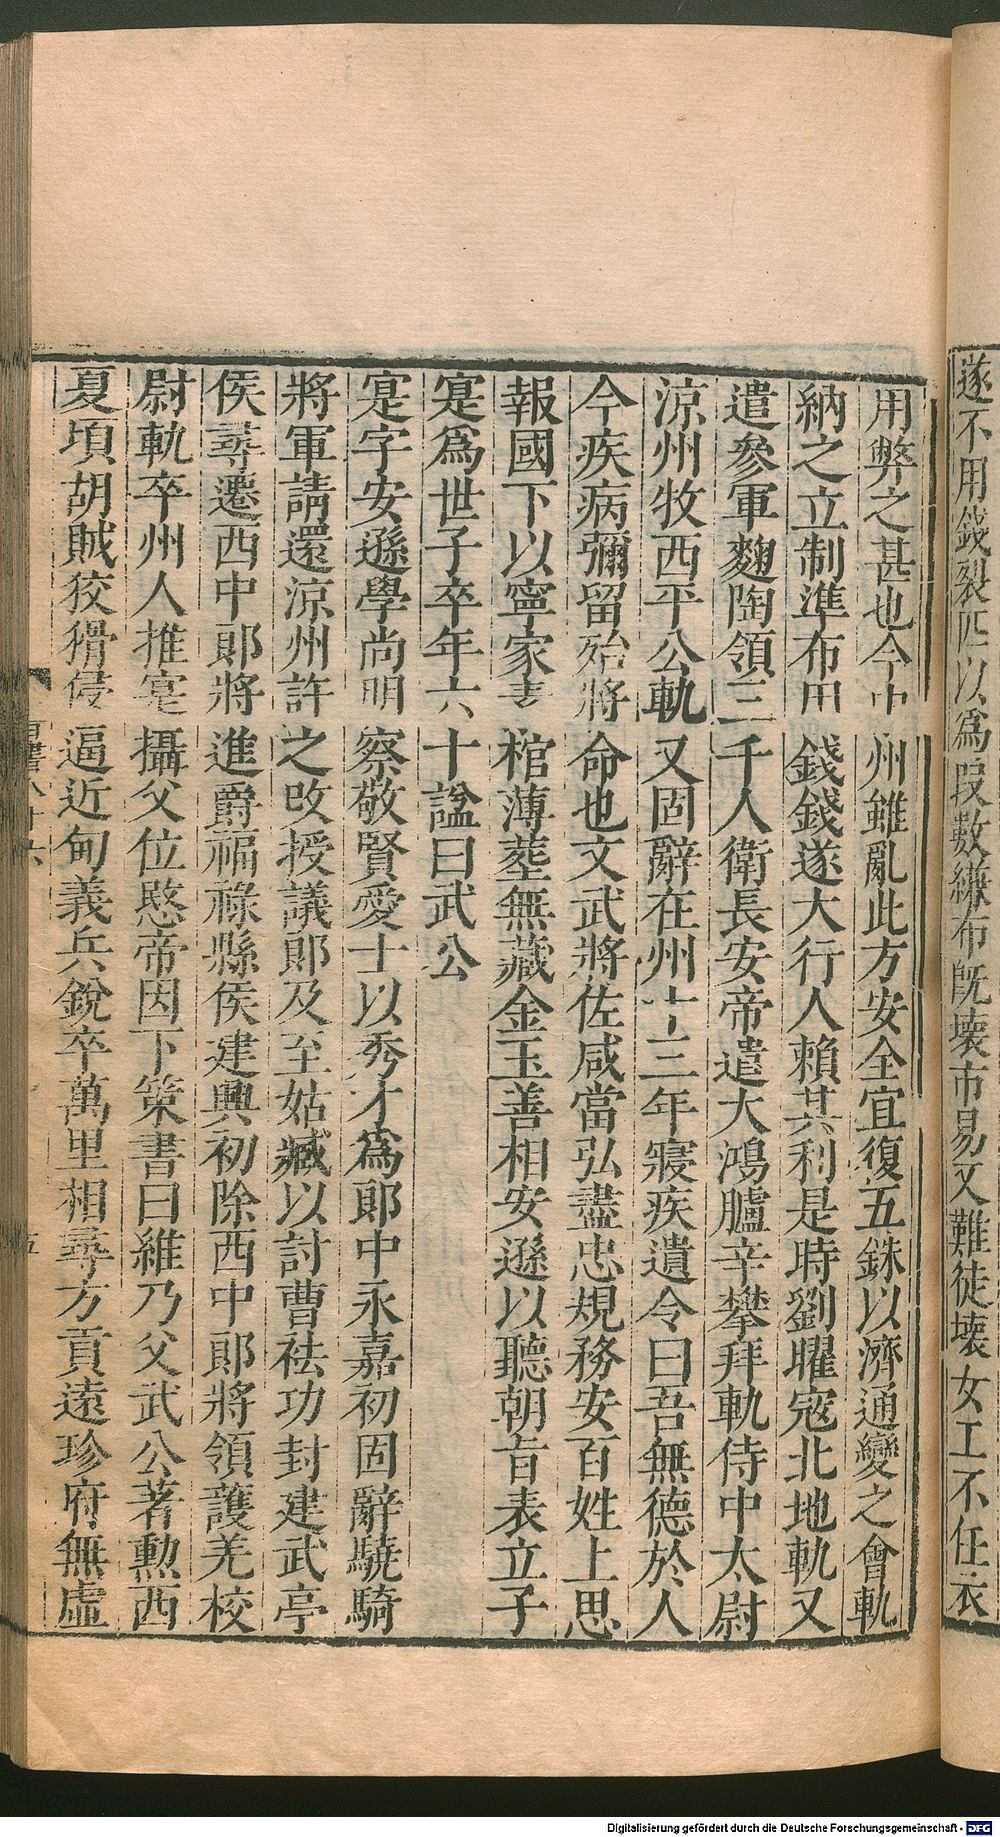 遂不用錢裂匹以爲段數縑布既壞市易又難徒壞女工不任衣
用弊之甚也今中州雖亂此方安全宜復五銖以濟通變之會軌
納之立制準布用錢錢遂大行人賴其利是時劉曜寇北地軌又
遣參軍麴陶領三千人衛長安帝遣大鴻臚辛攀拜軌侍中太尉
涼州牧西平公軌又固辭在州十三年寢疾遺令曰吾無德於人
今疾病彌留殆將命也文武將佐咸當弘盡忠規務安百姓上思
報國下以寧家素棺薄葬無藏金玉善相安遜以聽朝旨表立子
寔爲世子卒年六十諡曰武公
寔字安遜學尚明察敬賢愛士以秀才爲郎中永嘉初固辭驍騎
將軍請還涼州許之改授議郎及至姑臧以討曹祛功封建武亭
侯尋遷西中郎將進爵福祿縣侯建興初除西中郎將領護羌校
尉軌卒州人推寔攝父位愍帝因下策書曰維乃父武公著勳西
夏頃胡賊狡猾侵逼近甸義兵銳卒萬里相尋方貢遠珍府無虛
書八十六 五
Digitalisierung gefördert durch die Deutsche Forschungsgemeinschaft - DFG